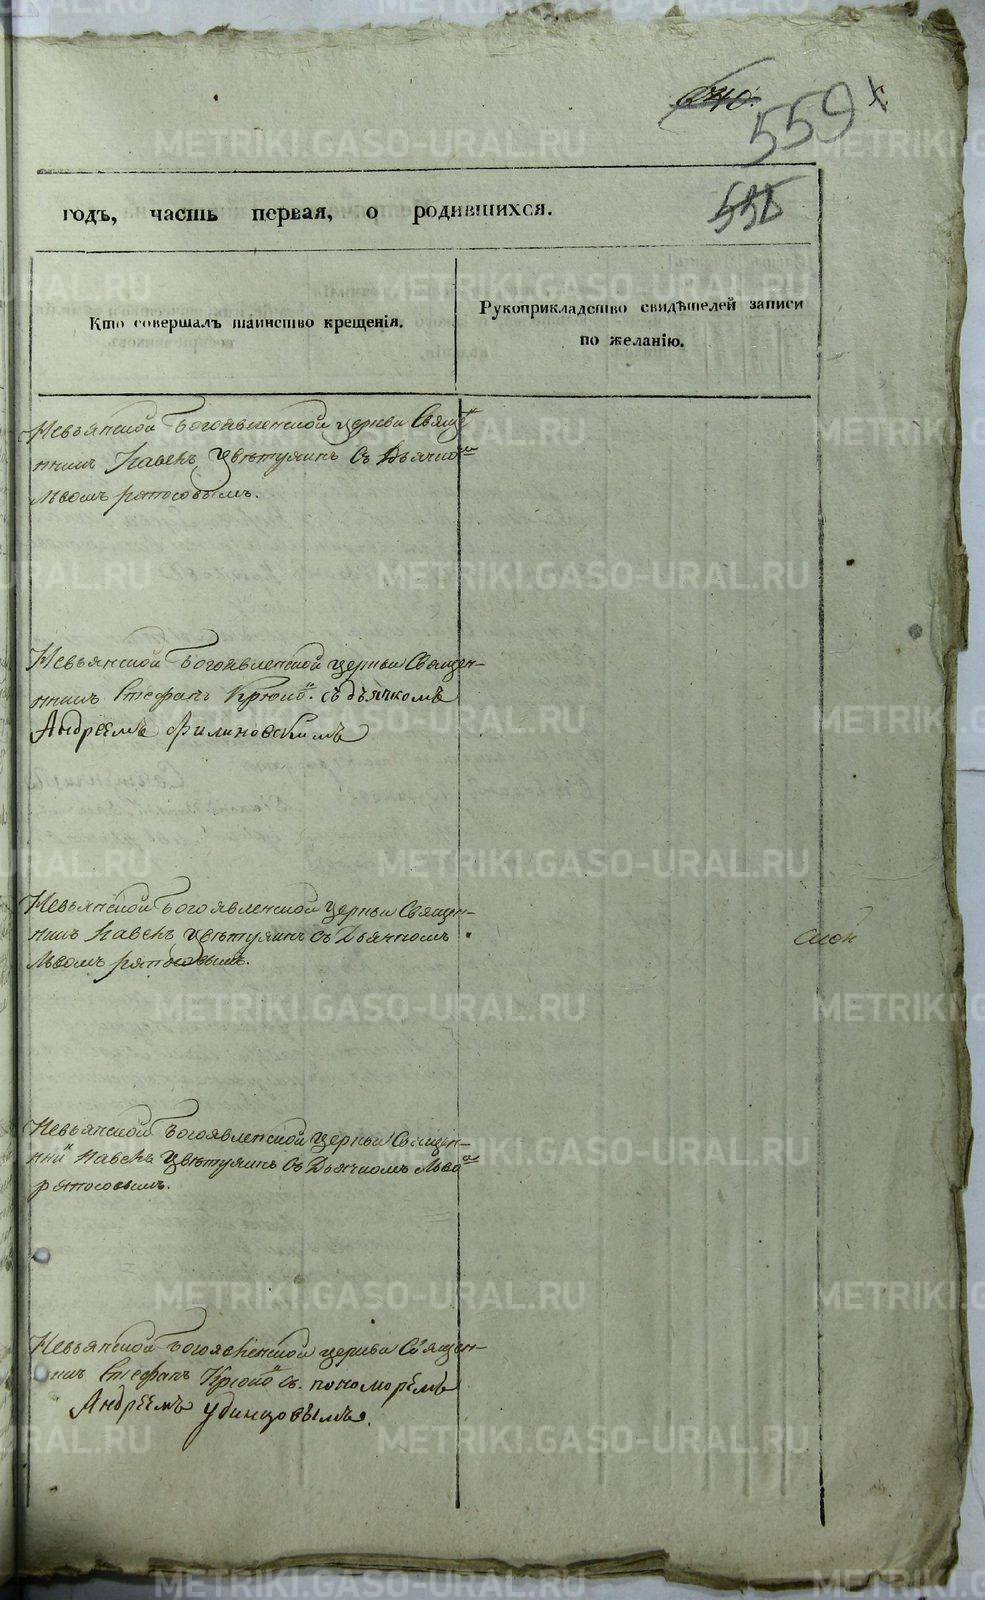 559
годъ, часть первая, о родившихся.
Кто совершалъ таинство крещенія.
Рукоприкладство свидѣтелей записи
по желанію.
Невьянской Богоявленской церкви Свяще
нникъ Павелъ с Дьячко
Львомъ
Невьянской Богоявленской церкви Священ-
никъ Стефанъ съ дьячкомъ
Андреемъ Филиновскимъ
Невьянской Богоявленской церкви Священ-
никъ Павелъ съ Дьячкомъ
Львомъ
Невьянской Богоявленской церкви Священ-
Павелъ съ Дьячкомъ Льво
Невьянской Богоявленской церкви Священ-
никъ Стефанъ съ пономоремъ
Андреемъ Удинцовымъ.
METRIKI.GASO-URAL.RU